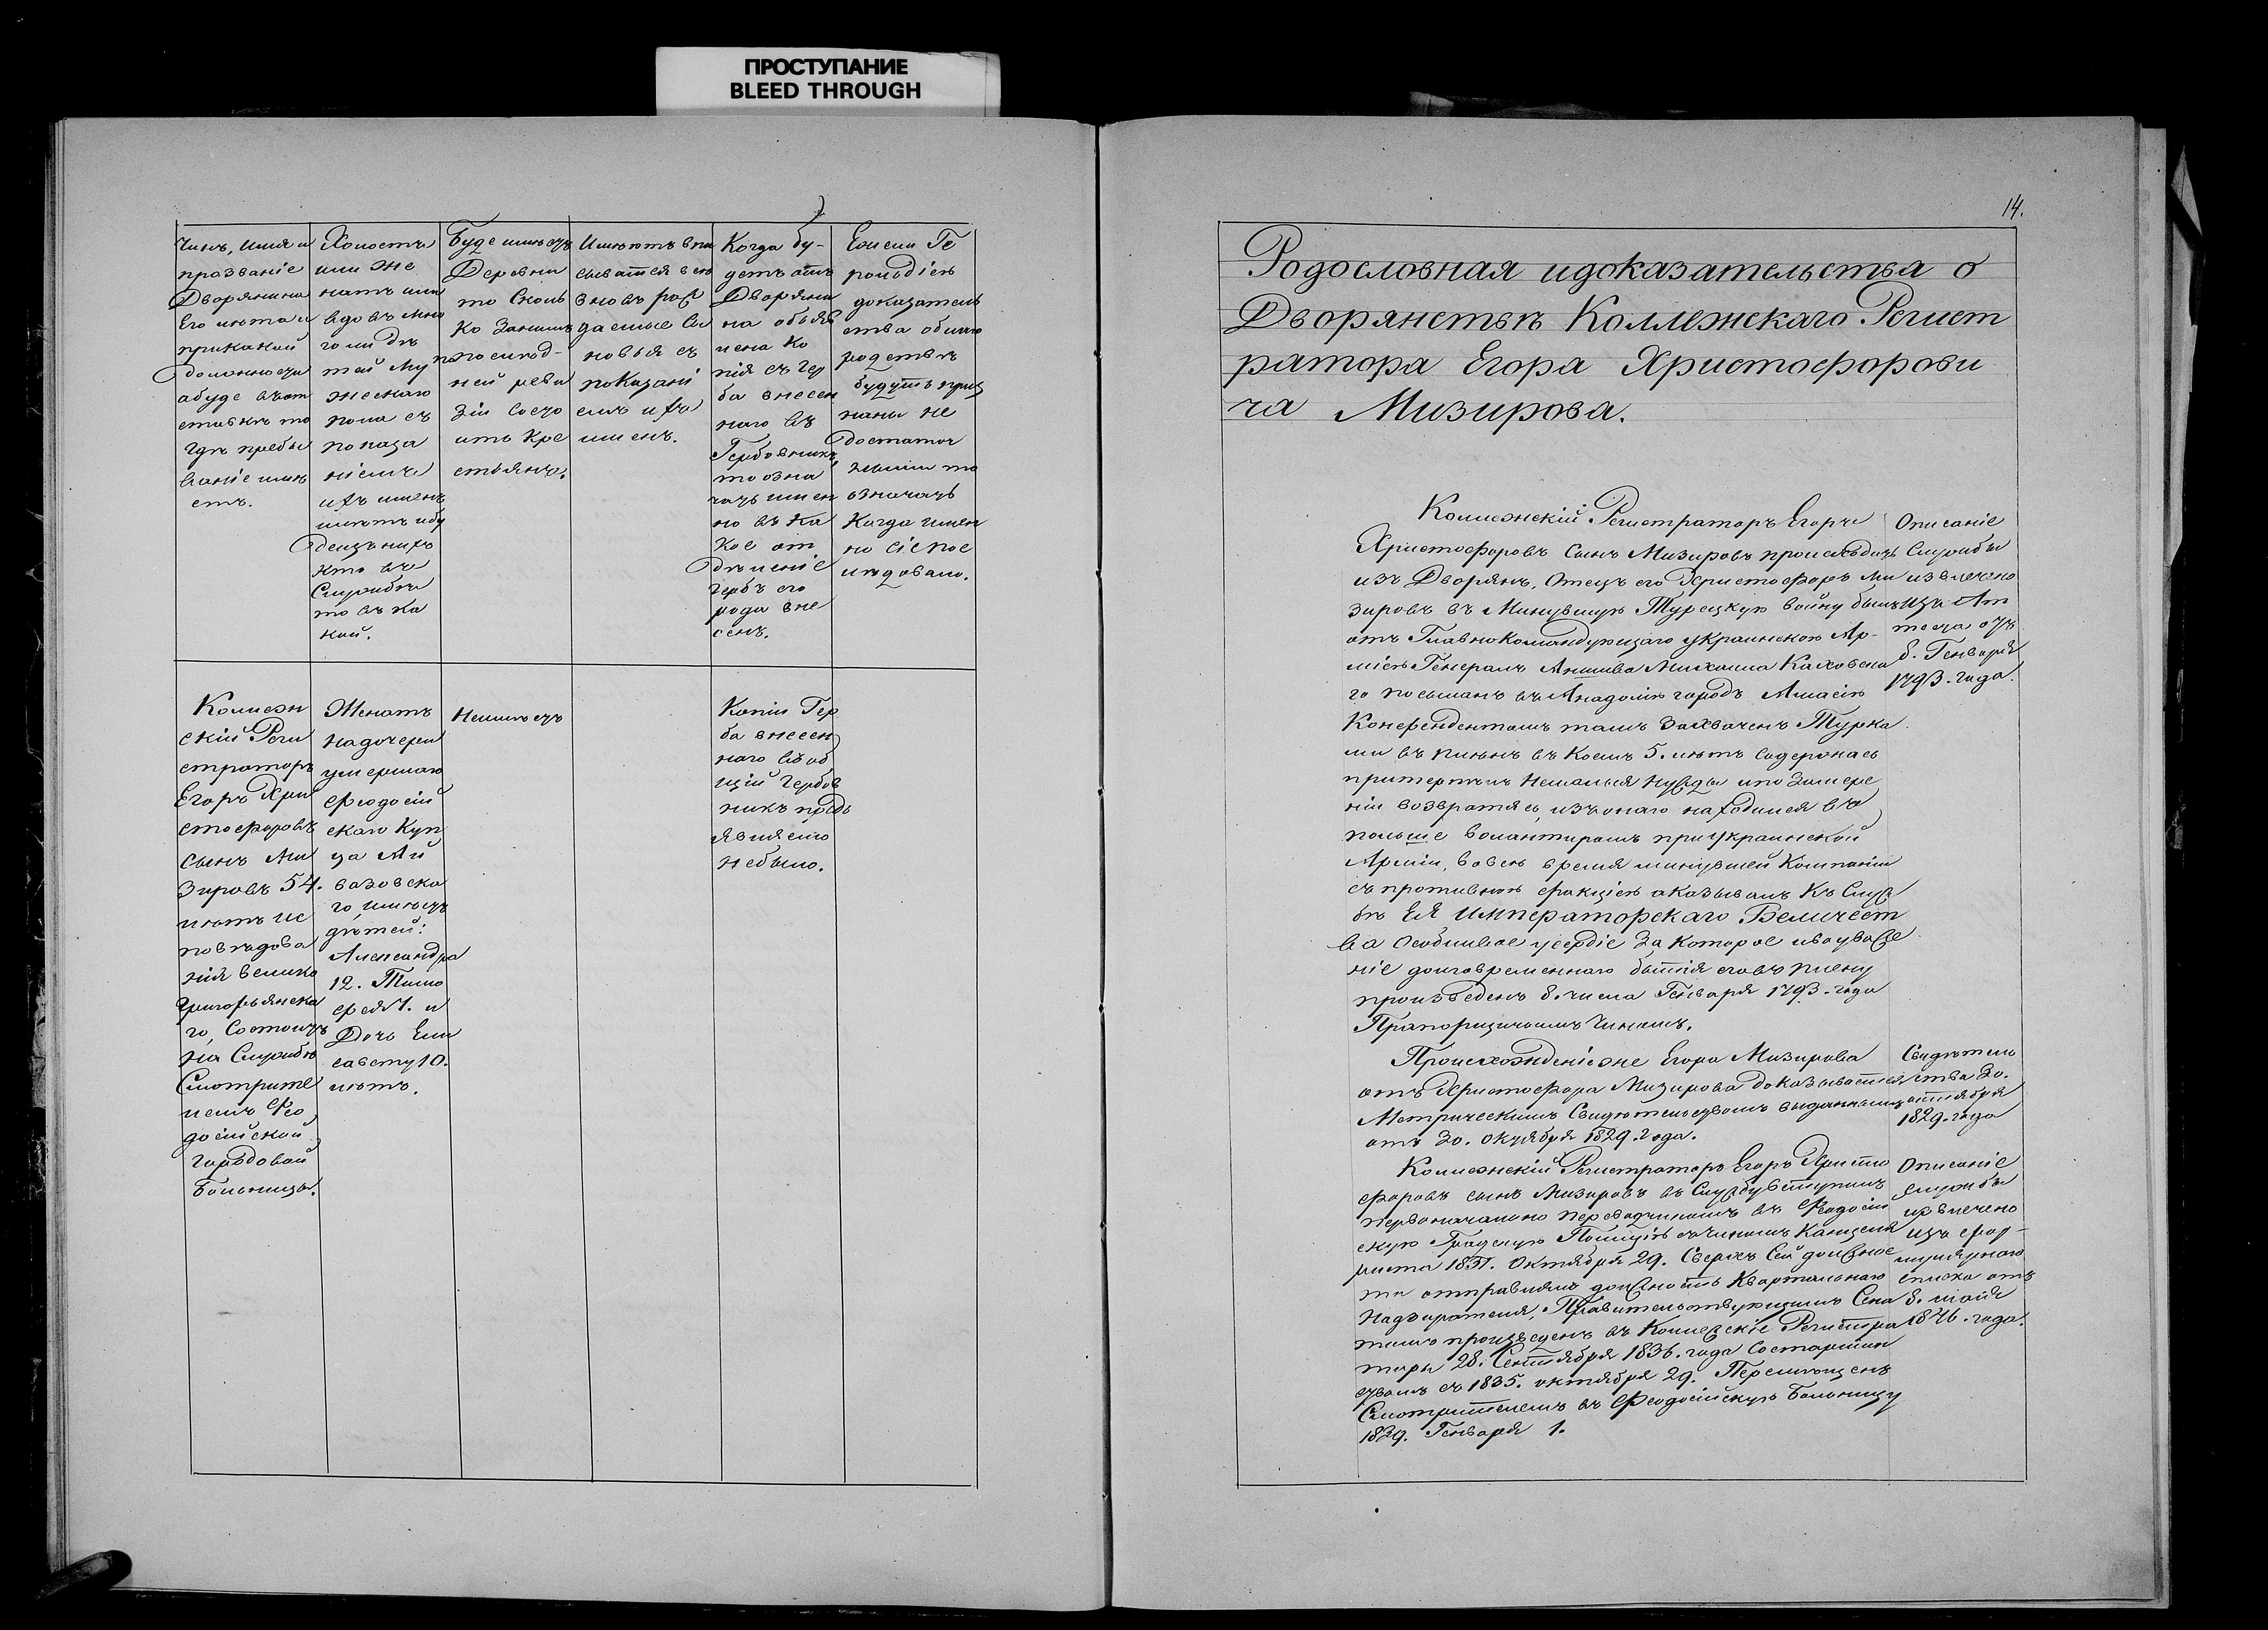 ПРОСТУПАНИЕ
BLEED THROUGH
Чинъ, имя и
прозваніе
Дворянина
Его лѣта и
при какой
должности
а буде въ от
ставкѣ то
гдѣ пребы
ваніе имѣ
етъ.
Холостъ
или же
натъ или
вдовъ мно
го ли дѣ
тей му
жескаго
пола съ
показа
ніемъ
ихъ именъ
лѣтъ и бу
де изъ нихъ
кто въ
Службѣ
то въ ка
кой.
Буде имѣетъ
Деревни
то Сколь
ко Занимъ
по послѣд-
ней реви
зіи Состо
итъ Кре
стьянъ.
Имѣютъ впи
сыватся всѣ
вновь рож
даемые Сы
новья съ
показані
емъ ихъ
именъ.
Когда бу-
детъ отъ
Дворяни
на объяв
лена ко
пія съ гер
ба внесен
наго въ
Гербовникъ,
то озна
чать имен
но въ Ка
кое от
дѣленіе
гербъ его
рода вне
сенъ.
Ежели Ге
рольдіею
доказатель
ства о благо
родствѣ
будутъ приз
наны не
достаточ
ными то
означать
Когда имен
но сіе пос
лѣдовало.
Коллеж
скій Реги
страторъ
Егоръ Хри
стофоровъ
Сынъ Ми
зировъ 54.
лѣтъ ис
повѣдова
нія велико
Григорьянска
го, Состоитъ
на Службѣ
Смотрите
лемъ Фео
досійской
городовой
Больницы.
Женатъ
на дочери
умершаго
Феодосій
скаго Куп
ца Ай
вазовска
го, имѣетъ
дѣтей:
Александра
12. Тимо
фея 1. и
Дочь Ели
савету 10.
лѣтъ.
Неимѣетъ
Копіи Гер
ба внесен
наго въ об
щій гербов
никъ предъ
являемо
небыло.
14.
Родословная и доказательства о
Дворянствѣ Коллежскаго Регист
ратора Егора Христофорови
ча Мизирова.
Коллежскій Регистраторъ Егоръ
Христофоровъ Сынъ Мизировъ происходитъ
изъ Дворянъ, Отецъ его Христофоръ Ми
зировъ въ Минувшую Турецкую войну былъ
отъ Главнокомандующаго украинскою Ар-
міею Генералъ Аншива Михаила Каховска
го посыланъ въ Анадолію городъ Амасію
Конфендентомъ тамъ Захваченъ Турка
ми въ плѣнъ въ Коемъ 5. лѣтъ Содержась
притерпѣлъ немалыя нужды и по Замире
ніи возвратясь, изъ онаго находился въ
польше волантиромъ при украинской
Арміи, во всю время минувшей Компаніи
съ противною факціею оказывалъ Къ Служ
бѣ ЕЯ Императорскаго Величест
ва Особливое усердіе За Которое и во уваже
ніе долговременнаго бытія его въ плену
произведенъ 8. числа Генваря 1793. года
Прапорщичьимъ Чиномъ.
Описаніе
Службы
извлечено
изъ Ат
теста отъ
8. Генваря
1793. года.
Происхожденіе же Егора Мизирова
отъ Христофора Мизирова доказывается
Метрическимъ Свидѣтельствомъ выданнымъ
отъ 30. Октября 1829. года.
Свидѣтель
ства 30.
октября
1829. года
Коллежскій Регистраторъ Егоръ Христо
форовъ сынъ Мизировъ въ Службу вступилъ
первоначально переводчикомъ въ Феодосій
скую Градскую Полицію съ Чиномъ Канцеля
риста 1831. Октября 29. Сверхъ Сей должнос
ти отправлялъ должность Квартальнаго
Надзирателя, Правительствующимъ Сена
томъ произведенъ въ Коллежскіе Регистра
торы 28. Сентября 1836. года Со старшин
ствомъ съ 1835. октября 29. Перемѣщенъ
Смотрителемъ въ Феодосійскую Больницу
1839. Генваря 1.
Описаніе
Службы
извлечено
изъ фор-
мулярнаго
списка отъ
8. маія
1846. года.